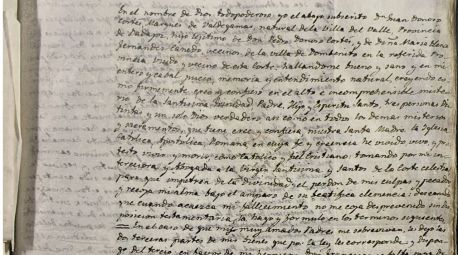 En el nombre de Dios todopoderoso, yo el abajo subscrito Dn Juan Donoso
Cortés, Marqués de Valdegamas, natural de la Villa del Valle, Provincia
de Badajoz, hijo legítimo de Don Pedro Donoso Cortés, y de Doña María Elena
Fernandez Canedo, vecinos de la villa de Donbenito en la referida Pro-
vincia, y vecino de esta Corte; hallandome bueno y sano, y en mi
entero y cabal juicio, memoria y entendimiento natural, creyendo co-
mo firmemente creo y confieso en el alto e incomprensible miste-
rio de la Santísima Trinidad Padre, Hijo y Espíritu Santo, tres personas dis-
tintas y un solo Dios verdadero así como en todos los demas misterios
y Sacramentos, que tiene, cree y confiesa nuestra Santa Madre la Iglesia
Católica, Apostólica, Romana, en cuya fe y creencia he vivido, vivo y pro-
testo vivir y morir como católico y fiel cristiano: tomando por mi in-
tercesora y Abogada a la Virgen Santísima y Santos de la Corte celestial
para que impetren de la divinidad el perdon de mis culpas y pecados
y recoja mi alma bajo el amparo de su beatífica clemencia: deseando
que cuando acaesca mi fallecimiento no me coja desprevenido sin dis-
posicion testamentaria, la hago y formulo en los terminos siguientes
En el caso de que mis muy amados Padres me sobrevivan, les dejo las
dos terceras partes de mis bienes que por la ley les corresponde, y dispon-
go del tercio en favor de mi